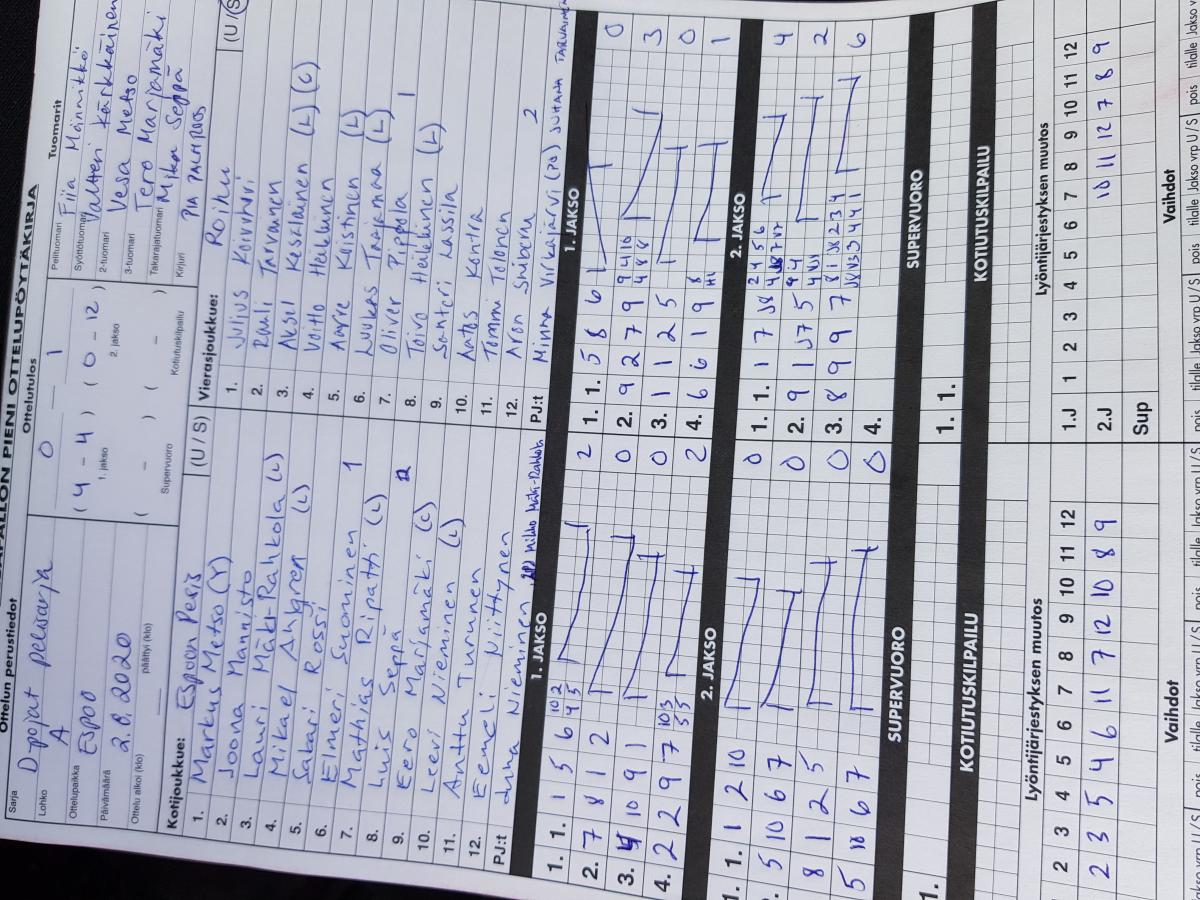 PESÄPALLON PIENI OTTELUPÖYTÄKIRJA
Ottelun perustiedot
Sarja D-pojat perussarja
Lohko A
Ottelupaikka Espoo
Päivämäärä 2.8.2020
Ottelu alkoi (klo) päättyi (klo)
Ottelutulos
0 – 1
( 4 – 4 ) ( 0 – 12 )
1. jakso 2. jakso
( – ) ( – )
Supervuoro Kotiutuskilpailu
Tuomarit
Pelituomari Fiia Männikkö
Syöttötuomari Valtteri Kärkkäinen
2-tuomari Vesa Metso
3-tuomari Tero Marjamäki
Takarajatuomari Mika Seppä
Kirjuri PIA PALMROOS
Kotijoukkue: Espoon Pesis (U / S)
1. Markus Metso (Y)
2. Joona Mannisto
3. Lauri Mäki-Rahkola (L)
4. Mikael Ahlgren (L)
5. Sakari Rossi
6. Elmeri Suominen 1
7. Mathias Ripatti (L)
8. Luis Seppä
9. Eero Marjamäki (C)
10. Leevi Nieminen (L)
11. Anttu Turunen
12. Eemeli Niittynen
PJ:t Juha Nieminen Mikko Mäki-Rahkola
Vierasjoukkue: Roihu (U / S)
1. Julius Koivuhovi
2. Rauli Tarvainen
3. Aksel Keskläinen (L) (C)
4. Voitto Heikkinen
5. Aarre Koistinen (L)
6. Luukas Traajanna (L)
7. Oliver Pippola 1
8. Toivo Heikkinen (L)
9. Santeri Lassila
10. Aatos Kontra
11. Tommi Tolonen
12. Aron Sniberu 2
PJ:t Minna Virkajärvi (70) JUHANA TARVAINEN
1. JAKSO
1. 1. 1 5 6 10 2 4 5 2
2. 7 8 1 2 0
3. 4 10 9 1 0
4. 2 2 9 7 10 3 5 5 2
1. JAKSO
1. 1. 5 8 6 0
2. 9 2 7 9 9 4 10 4 8 8 3
3. 1 1 2 5 0
4. 6 6 1 9 8 1
2. JAKSO
1. 1. 1 2 10 0
5 10 6 7 0
8 1 2 5 0
5 10 6 7 0
2. JAKSO
1. 1. 1 7 J8 2 4 5 6 4
2. 9 1 J7 5 9 4 2
3. 8 9 9 7 8 1 J8 2 3 4 6
4.
SUPERVUORO
1.
SUPERVUORO
1. 1.
KOTIUTUSKILPAILU
KOTIUTUSKILPAILU
Lyöntijärjestyksen muutos
2 3 4 5 6 7 8 9 10 11 12
2 3 5 4 6 11 7 12 10 8 9
Lyöntijärjestyksen muutos
1.J 1 2 3 4 5 6 7 8 9 10 11 12
2.J 10 11 12 7 8 9
Sup
Vaihdot
Vaihdot
pois tilalle Jakso vrp U / S